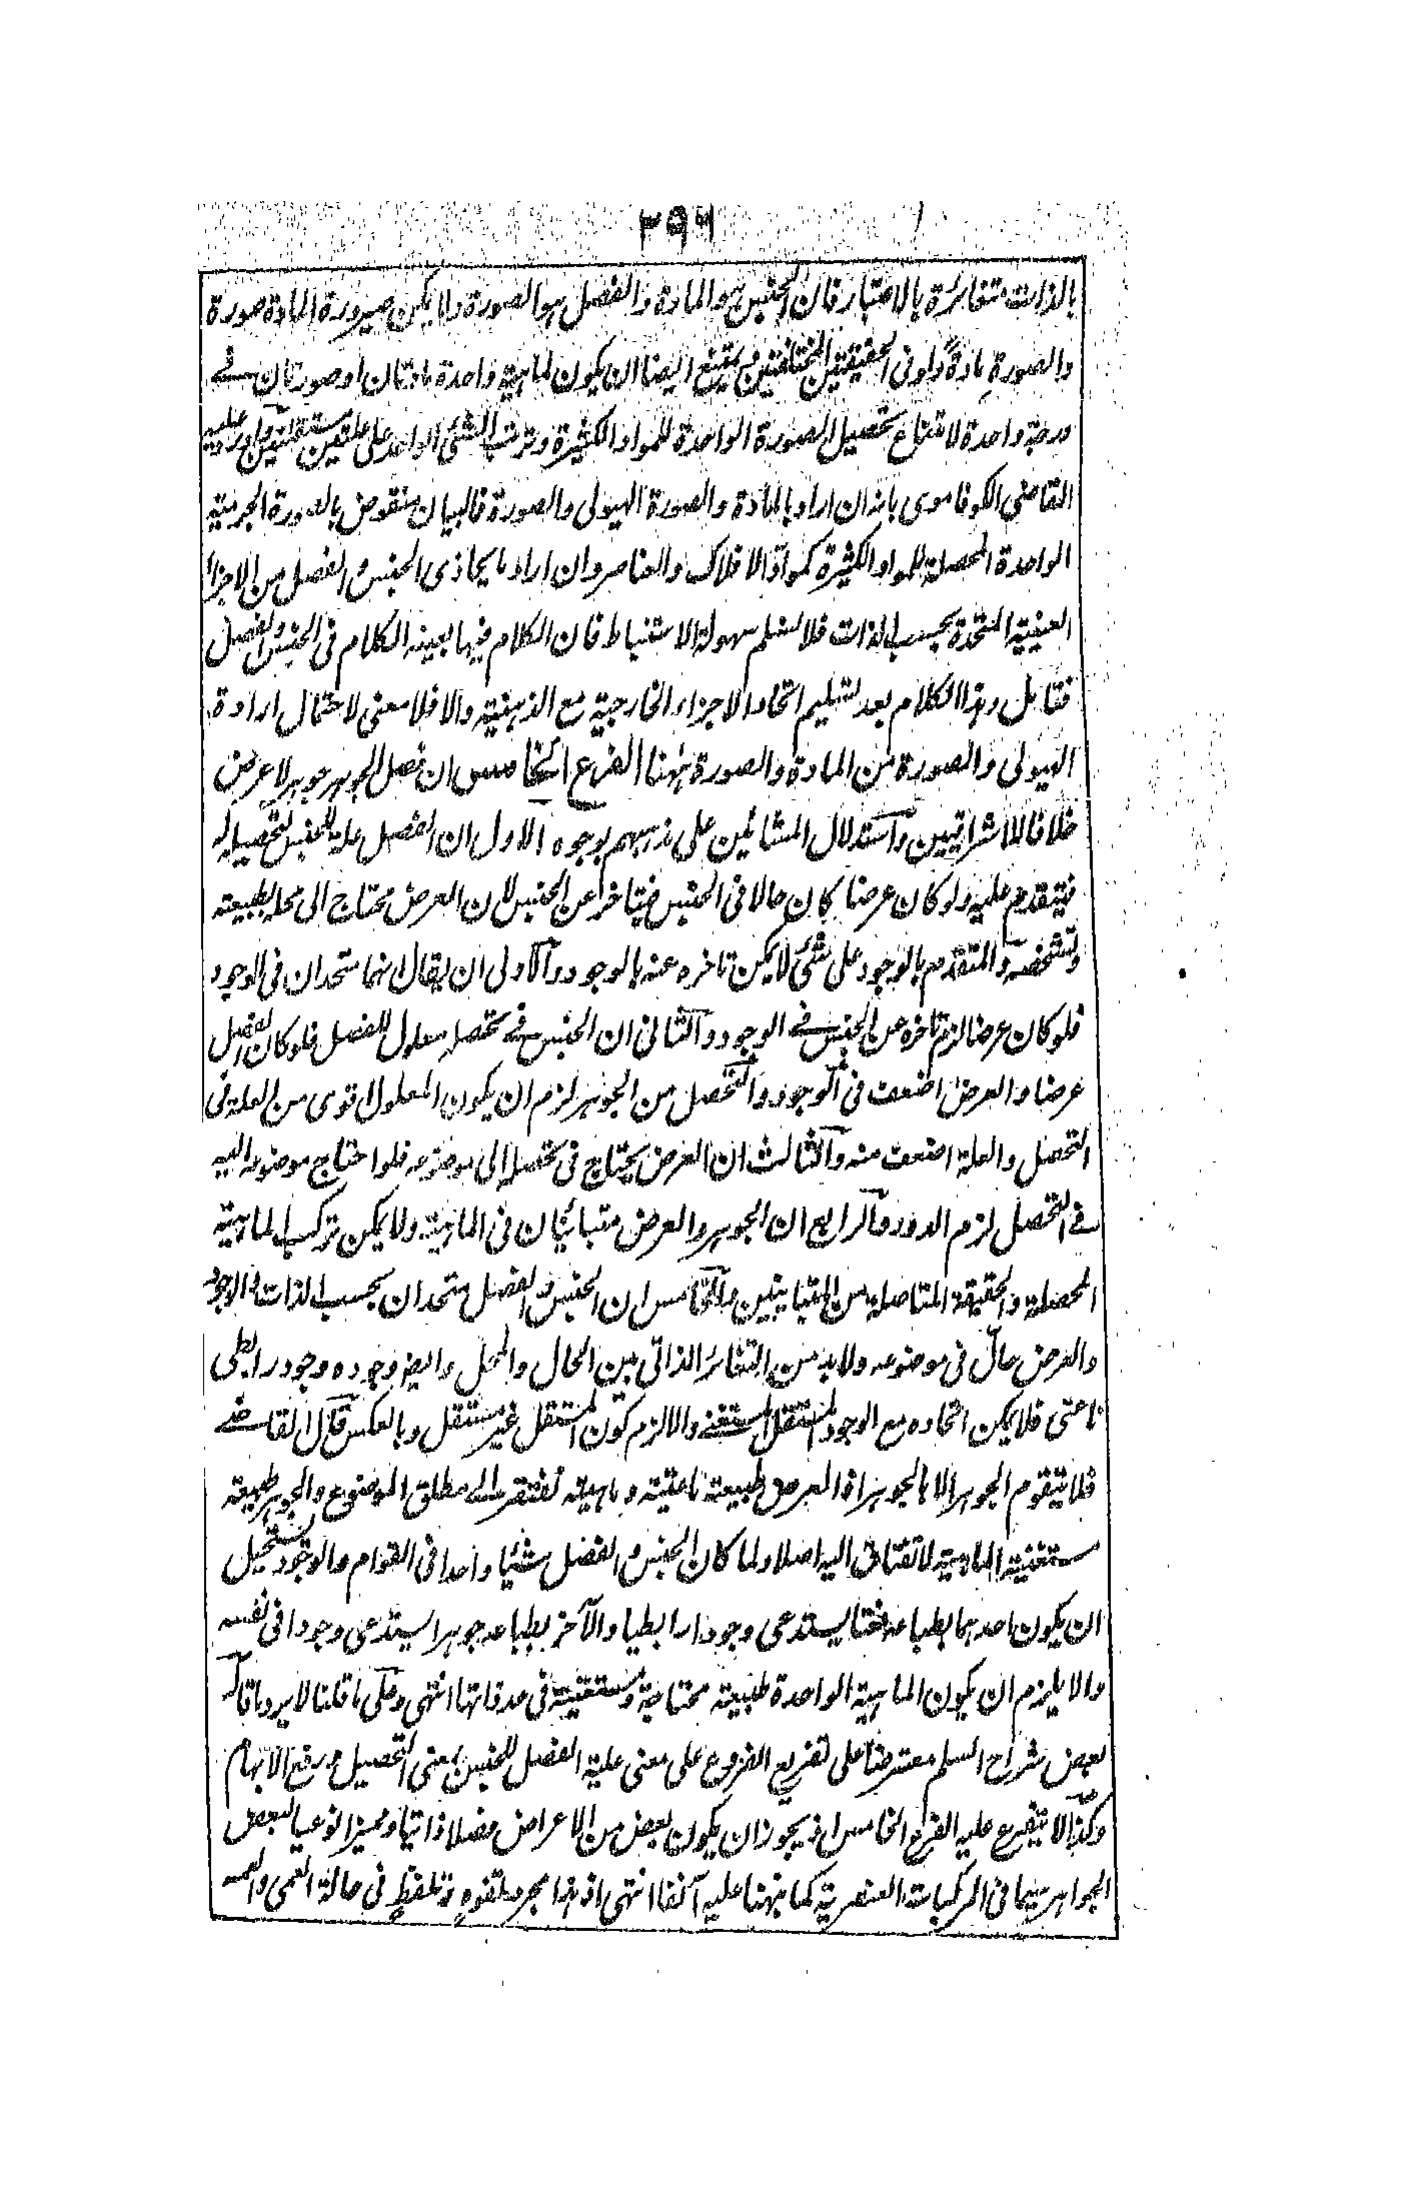 ٢٩٦
بالذات متغائرة بالاعتبار فان الجنس هو المادة والفصل هو الصورة ولا يمكن صيرورة المادة صورة
والصورة مادة ولو فى الحقيقتين المختلفتين ويمتنع ايضا ان يكون لماهية واحدة مادتان او صورتان فى
درجة واحدة لامتناع تحصيل الصورة الواحدة للمواد الكثيرة وترتب الشئ الواحد على علتين مستقلتين واورد عليه
القاضى الكوفاموى بانه ان اراد بالمادة والصورة الهيولى والصورة فالبيان منقوض بالصورة الجرمية
الواحدة المحصلة للمواد الكثيرة كمواد الافلاك والعناصر وان اراد ما يحاذى الجنس والفصل من الاجزاء
العينية المتحدة بحسب الذات فلا نسلم سهولة الاستنباط فان الكلام فيها بعينه الكلام فى الجنس والفصل
فتامل وهذا الكلام بعد تسليم اتحاد الاجزاء الخارجية مع الذهنية والا فلا معنى لاحتمال ارادة
الهيولى والصورة من المادة والصورة ههنا الفرع الخامس ان فصل الجوهر جوهر لا عرض
خلافا للاشراقيين واستدلال المشائين على مذهبهم بوجوه الاول ان الفصل علة للجنس لتحصيله له
فيتقدم عليه ولو كان عرضا كان حالا فى الجنس فيتاخر عن الجنس لان العرض محتاج الى محله بطبيعته
وتشخصه والمتقدم بالوجود على شئ لا يمكن تاخره عنه بالوجود والاولى ان يقال انهما متحدان فى الوجود
فلو كان عرضا لزم تاخره عن الجنس فى الوجود والثانى ان الجنس فى تحصله معلول للفصل فلو كان الفصل
عرضا والعرض اضعف فى الوجود والتحصل من الجوهر لزم ان يكون المعلول اقوى من العلة فى
التحصل والعلة اضعف منه والثالث ان العرض يحتاج فى تحصله الى موضوعه فلو احتاج موضوعه اليه
فى التحصل لزم الدور والرابع ان الجوهر والعرض متبائنان فى الماهية ولا يمكن تركب الماهية
المحصلة والحقيقة المتاصلة من المتباينين والخامس ان الجنس والفصل متحدان بحسب الذات والوجود
والعرض حال فى موضوعه ولا بد من التغائر الذاتى بين الحال والمحل وايضا وجوده وجود رابطى
ناعتى فلا يمكن اتحاده مع الوجود المستقل المستغنى والا لزم كون المستقل غير مستقل وبالعكس قال القاضى
فلا يتقوم الجوهر الا بالجوهر اذ العرض طبيعة ناعتية وماهية تفتقر الى مطلق الموضوع والجوهر طبيعة
مستغنية الماهية لا تفتاق اليه اصلا ولما كان الجنس والفصل شيئا واحدا فى القوام والوجود يستحيل
ان يكون احدهما بطباعه نعتا يستدعى وجودا رابطيا والآخر بطباعه جوهرا يستدعى وجودا فى نفسه
والا يلزم ان يكون الماهية الواحدة طبيعة محتاجة ومستغنية فى حد ذاتها انتهى وعلى ما قلنا لا يرد ما قال
بعض شراح السلم معترضا على تفريع الفروع على معنى علية الفصل للجنس بمعنى التحصيل ورفع الابهام
وكذا لا يتفرع عليه الفرع الخامس اذ يجوز ان يكون بعض من الاعراض فصلا ذاتيا ومميزا نوعيا لبعض
الجواهر سيما فى المركبات العنصرية كما نبهنا عليه آنفا انتهى اذ هذا مجرد تفوه وتلفظ فى حالة العمى والعمه